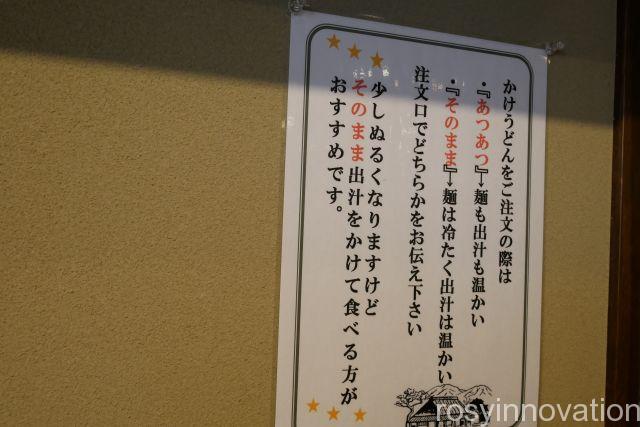 かけうどんをご注文の際は
・『あつあつ』→麺も出汁も温かい
・『そのまま』→麺は冷たく出汁は温かい
注文口でどちらかをお伝え下さい
少しぬるくなりますけど
そのまま出汁をかけて食べる方が
おすすめです。
rosyinnovation